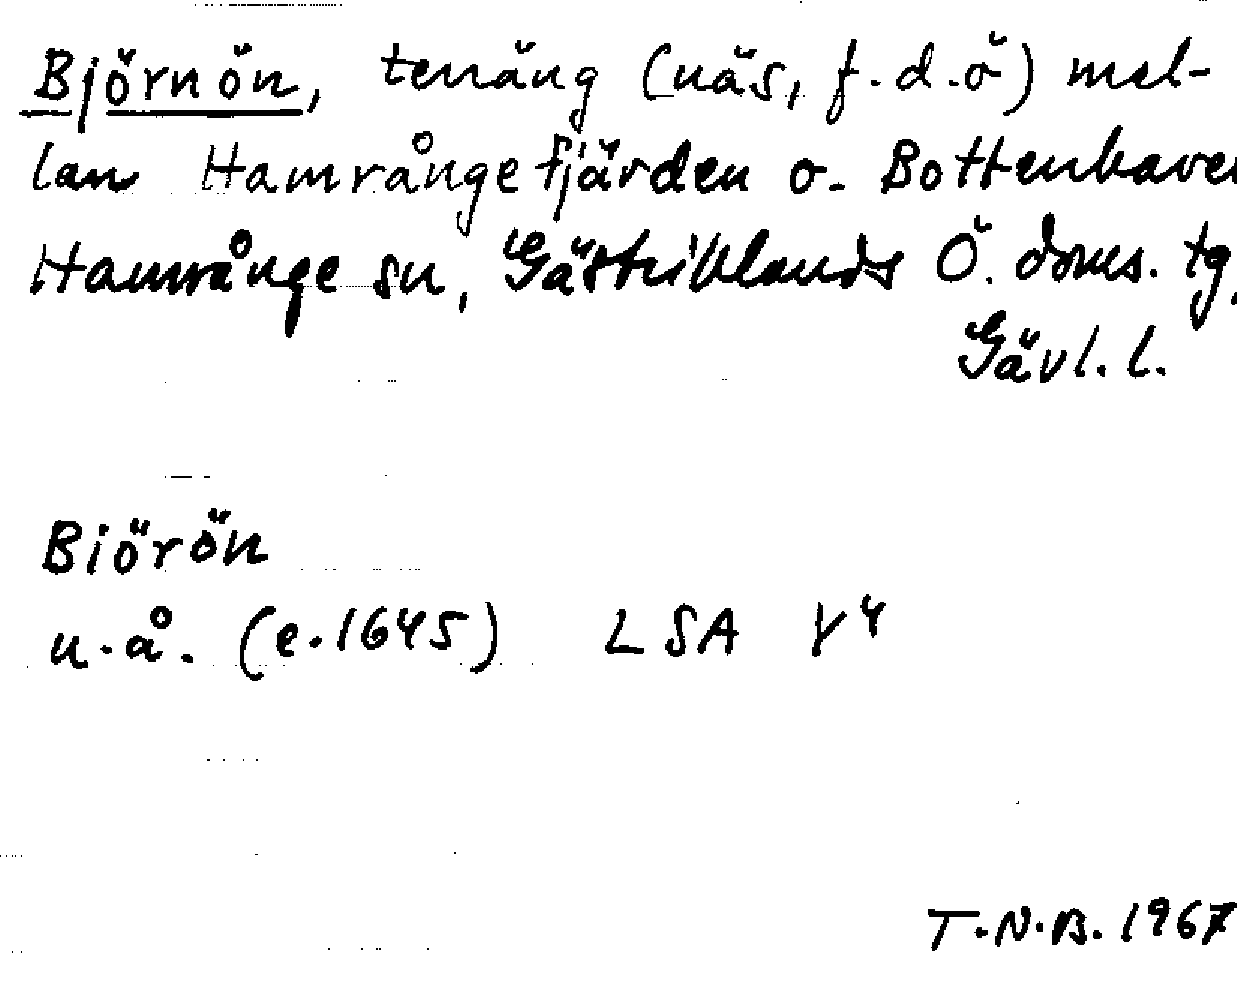 Björnön, terräng (näs, f.d.ö) mel-
lan Hamrångefjärden o. Bottenhave
Hamrånge sn, Gästriklands Ö. doms. tg,
Gävl. l.
Biörön
u.å. (e.1645) LSA V4
T.N.B. 1967